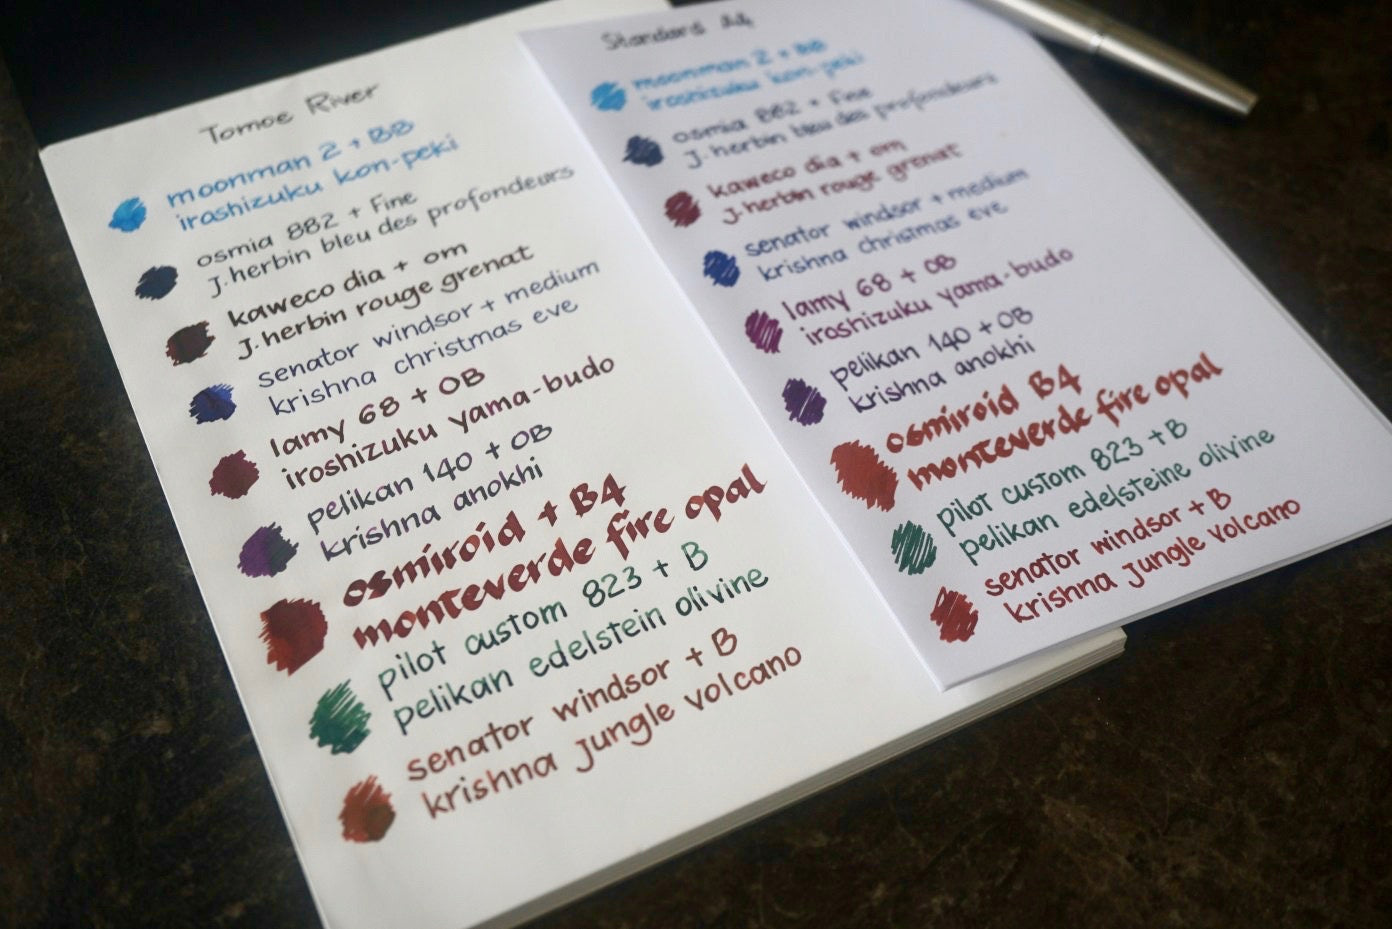 Tomoe River
moonman 2 + BB
irashizuku kon-peki
osmia 882 + Fine
J.herbin bleu des profondeurs
kaweco dia + om
J.herbin rouge grenat
senator windsor + medium
krishna christmas eve
lamy 68 + OB
iroshizuku yama-budo
pelikan 140 + OB
krishna anokhi
osmiroid + B4
monteverde fire opal
pilot custom 823 + B
pelikan edelstein olivine
senator windsor + B
krishna jungle volcano
Standard A4
moonman 2 + BB
iroshizuku kon-peki
osmia 882 + Fine
J.herbin bleu des profondeurs
kaweco dia + om
J.herbin rouge grenat
senator windsor + medium
krishna christmas eve
lamy 68 + OB
iroshizuku yama-budo
pelikan 140 + OB
krishna anokhi
osmiroid B4
monteverde fire opal
pilot custom 823 + B
pelikan edelsteine olivine
senator windsor + B
krishna jungle volcano